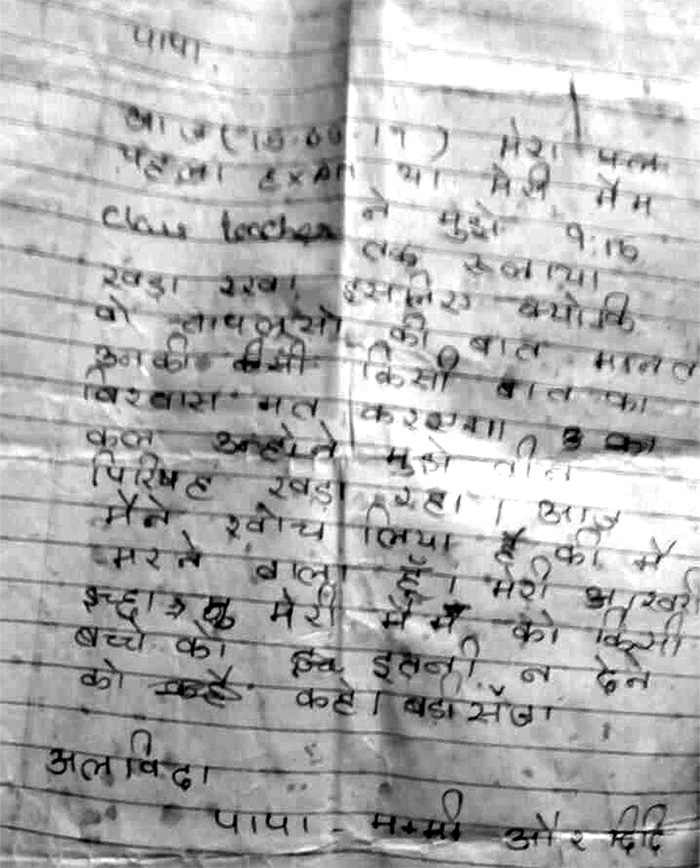 पापा,
आज (15.09.17) मेरा
पहला EXAM था मेरी मैम
class teacher ने मुझे 9:15
तक रूलाया
खड़ा रखा इसलिए क्योकि
वो चापलूसो की बात मानते
उनकी किसी बात का
विश्वास मत
कल उन्होने मुझे तीन
पिरियड खड़ा रखा। आज
मैने सोच लिया है की मै
मरने वाला हूँ। मेरी आखरी
इच्छा मेरी मैम को किसी
बच्चे को इतनी न देने
को कहे। बड़ी सजा
अलविदा
पापा - मम्मी और दिदि